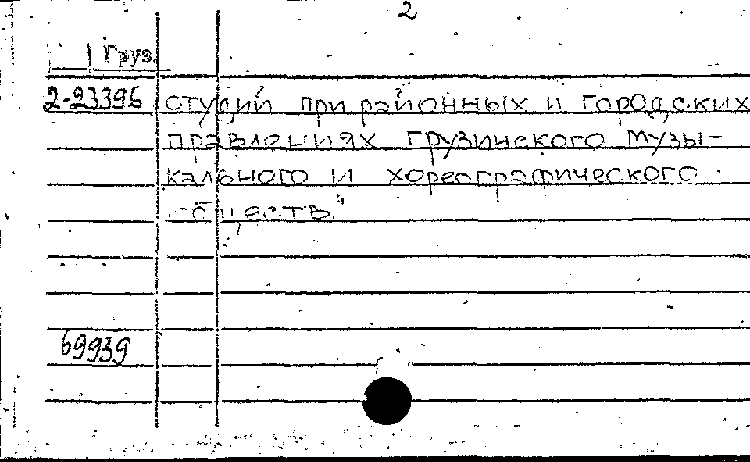 2
Груз.
2-23396 студий при районных и городских
правлениях грузинского музы-
кального и хореографического
обществ"
69939